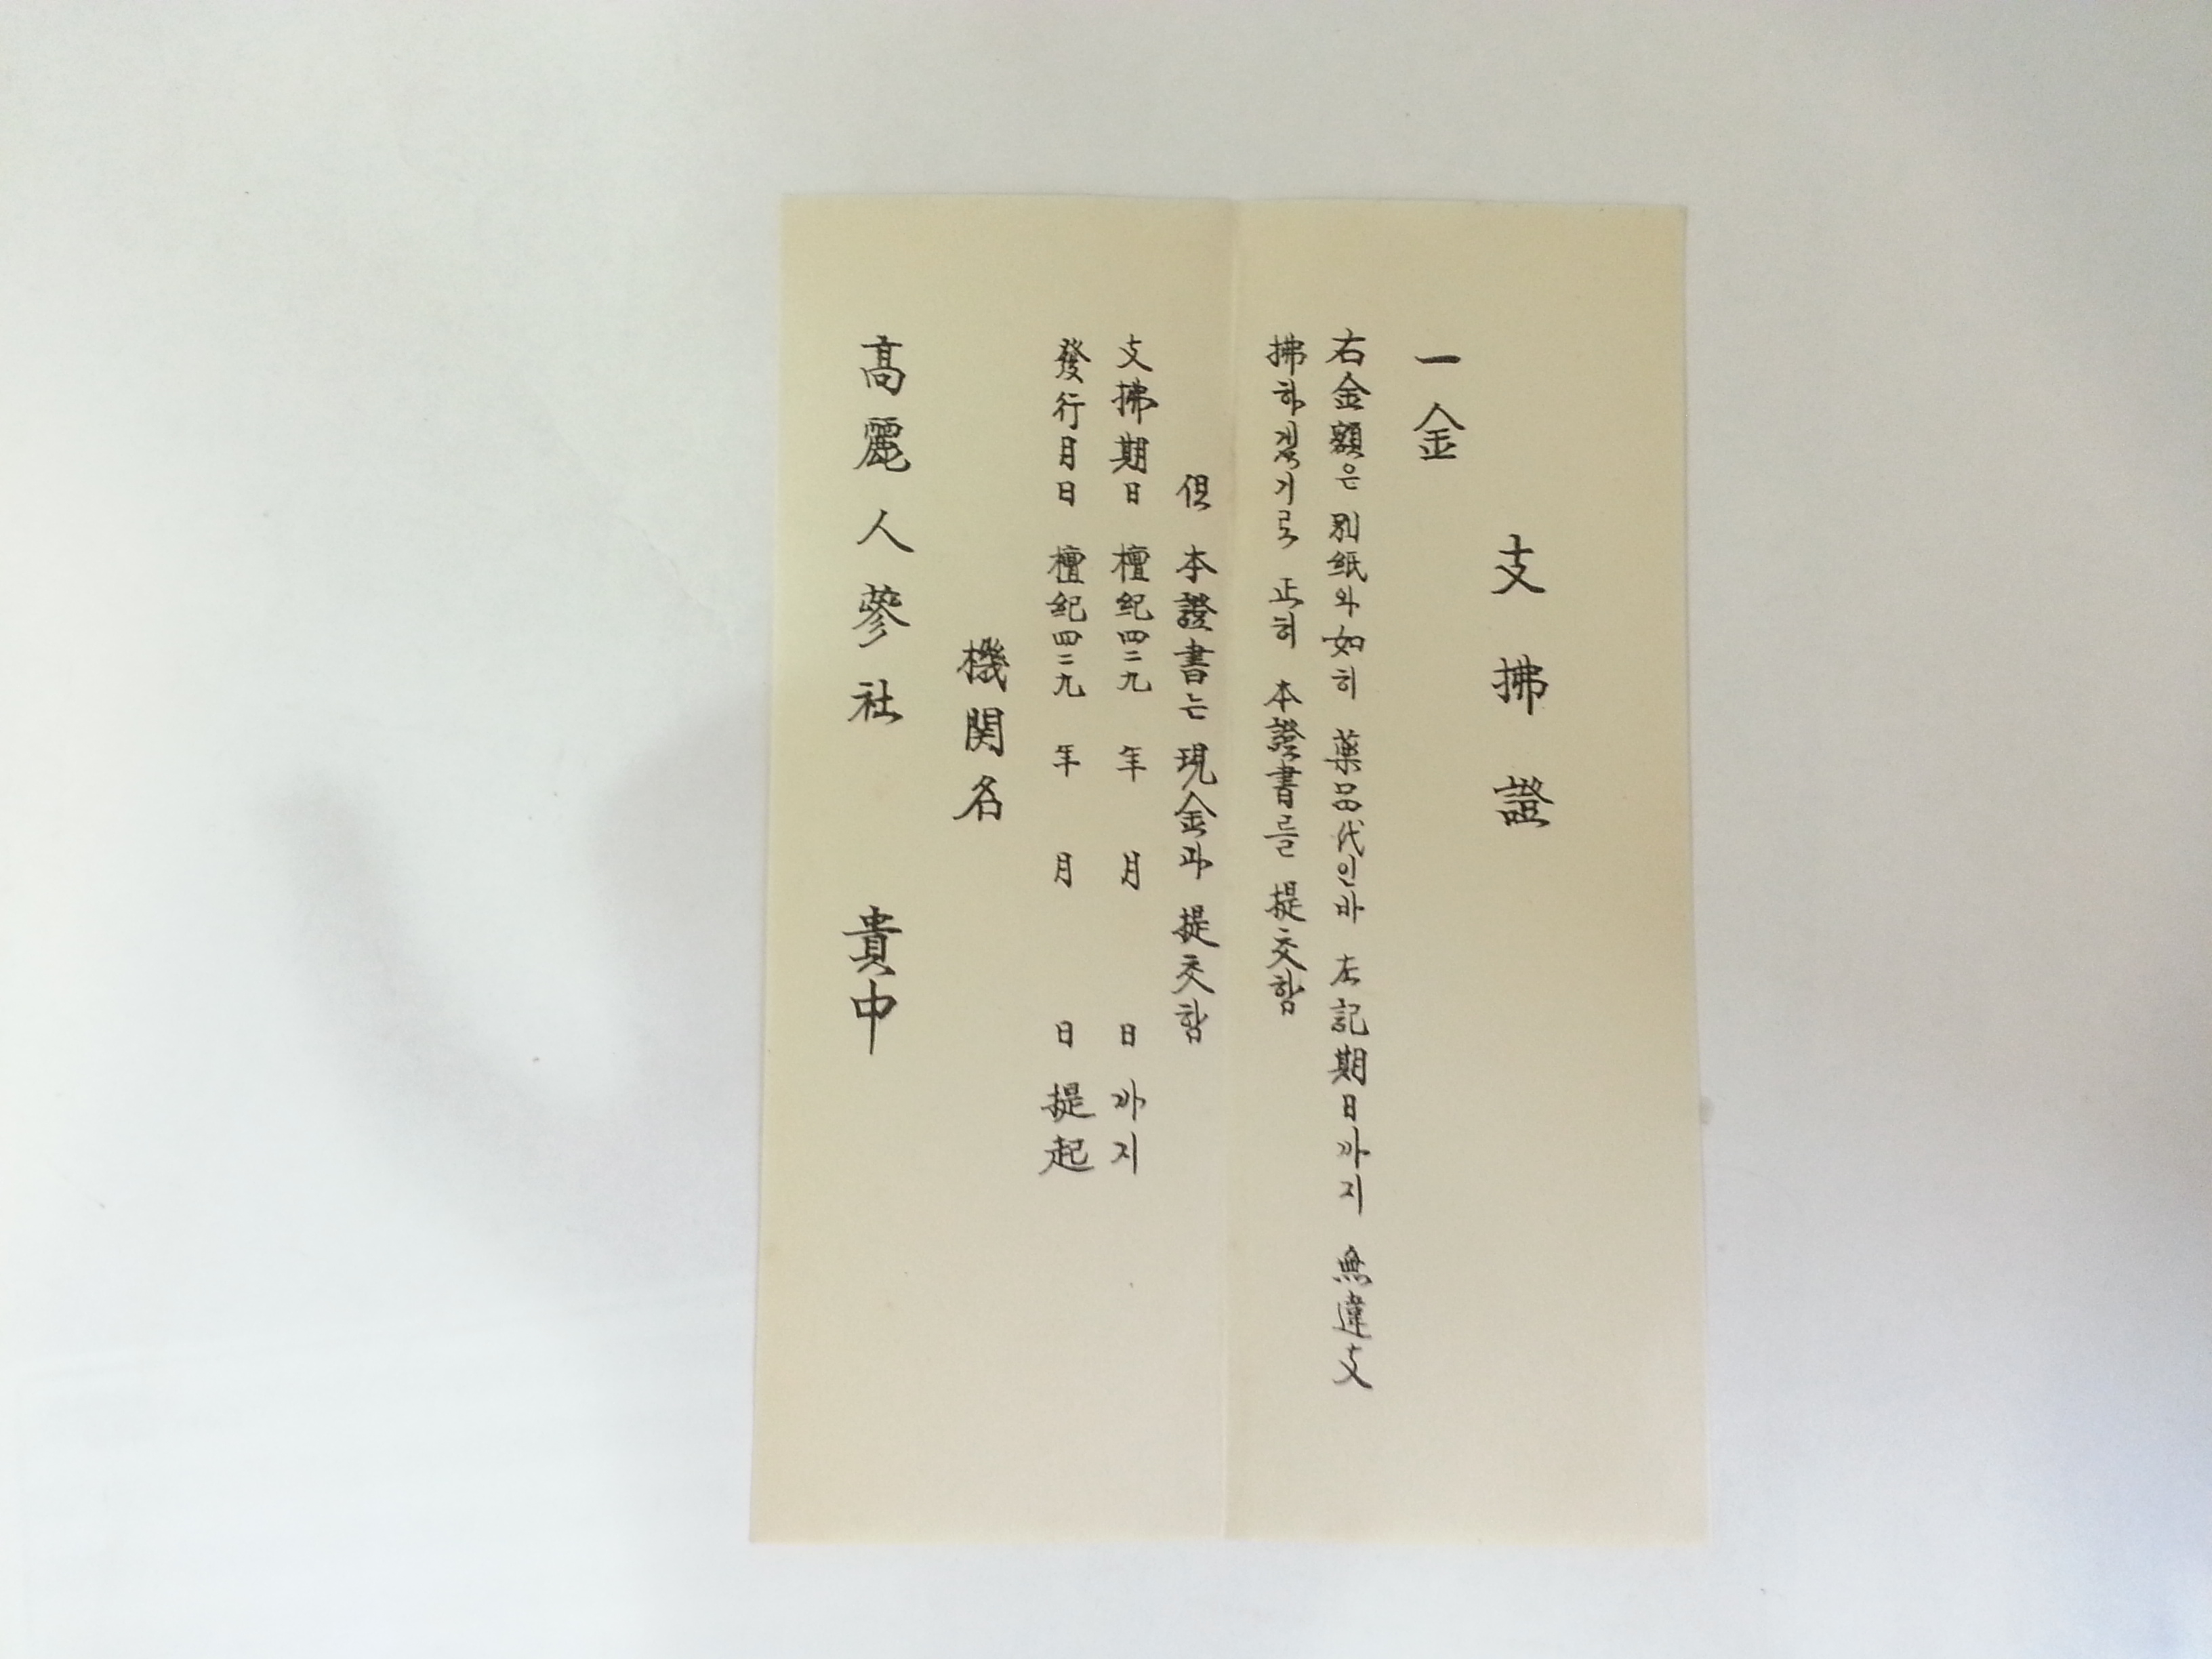 支拂證
一金
右金額은 別紙와 如히 薬品代인바 左記期日까지 無違支
拂하겠기로 正히 本證書를 提交함
但 本證書는 現金과 提交함
支拂期日 檀紀四二九 年 月 日 까지
發行月日 檀紀四二九 年 月 日 提起
機関名
高麗人蔘社 貴中